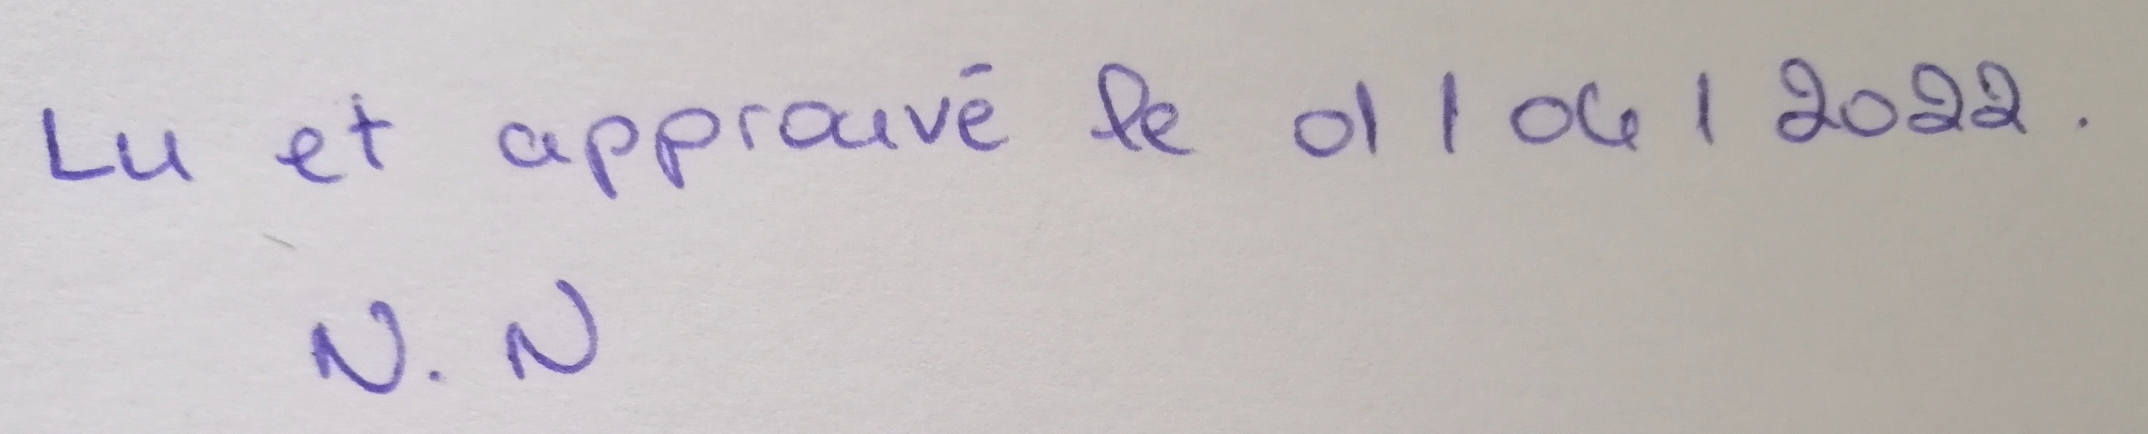 Lu et approuvé le 01/04/2022.
N. N